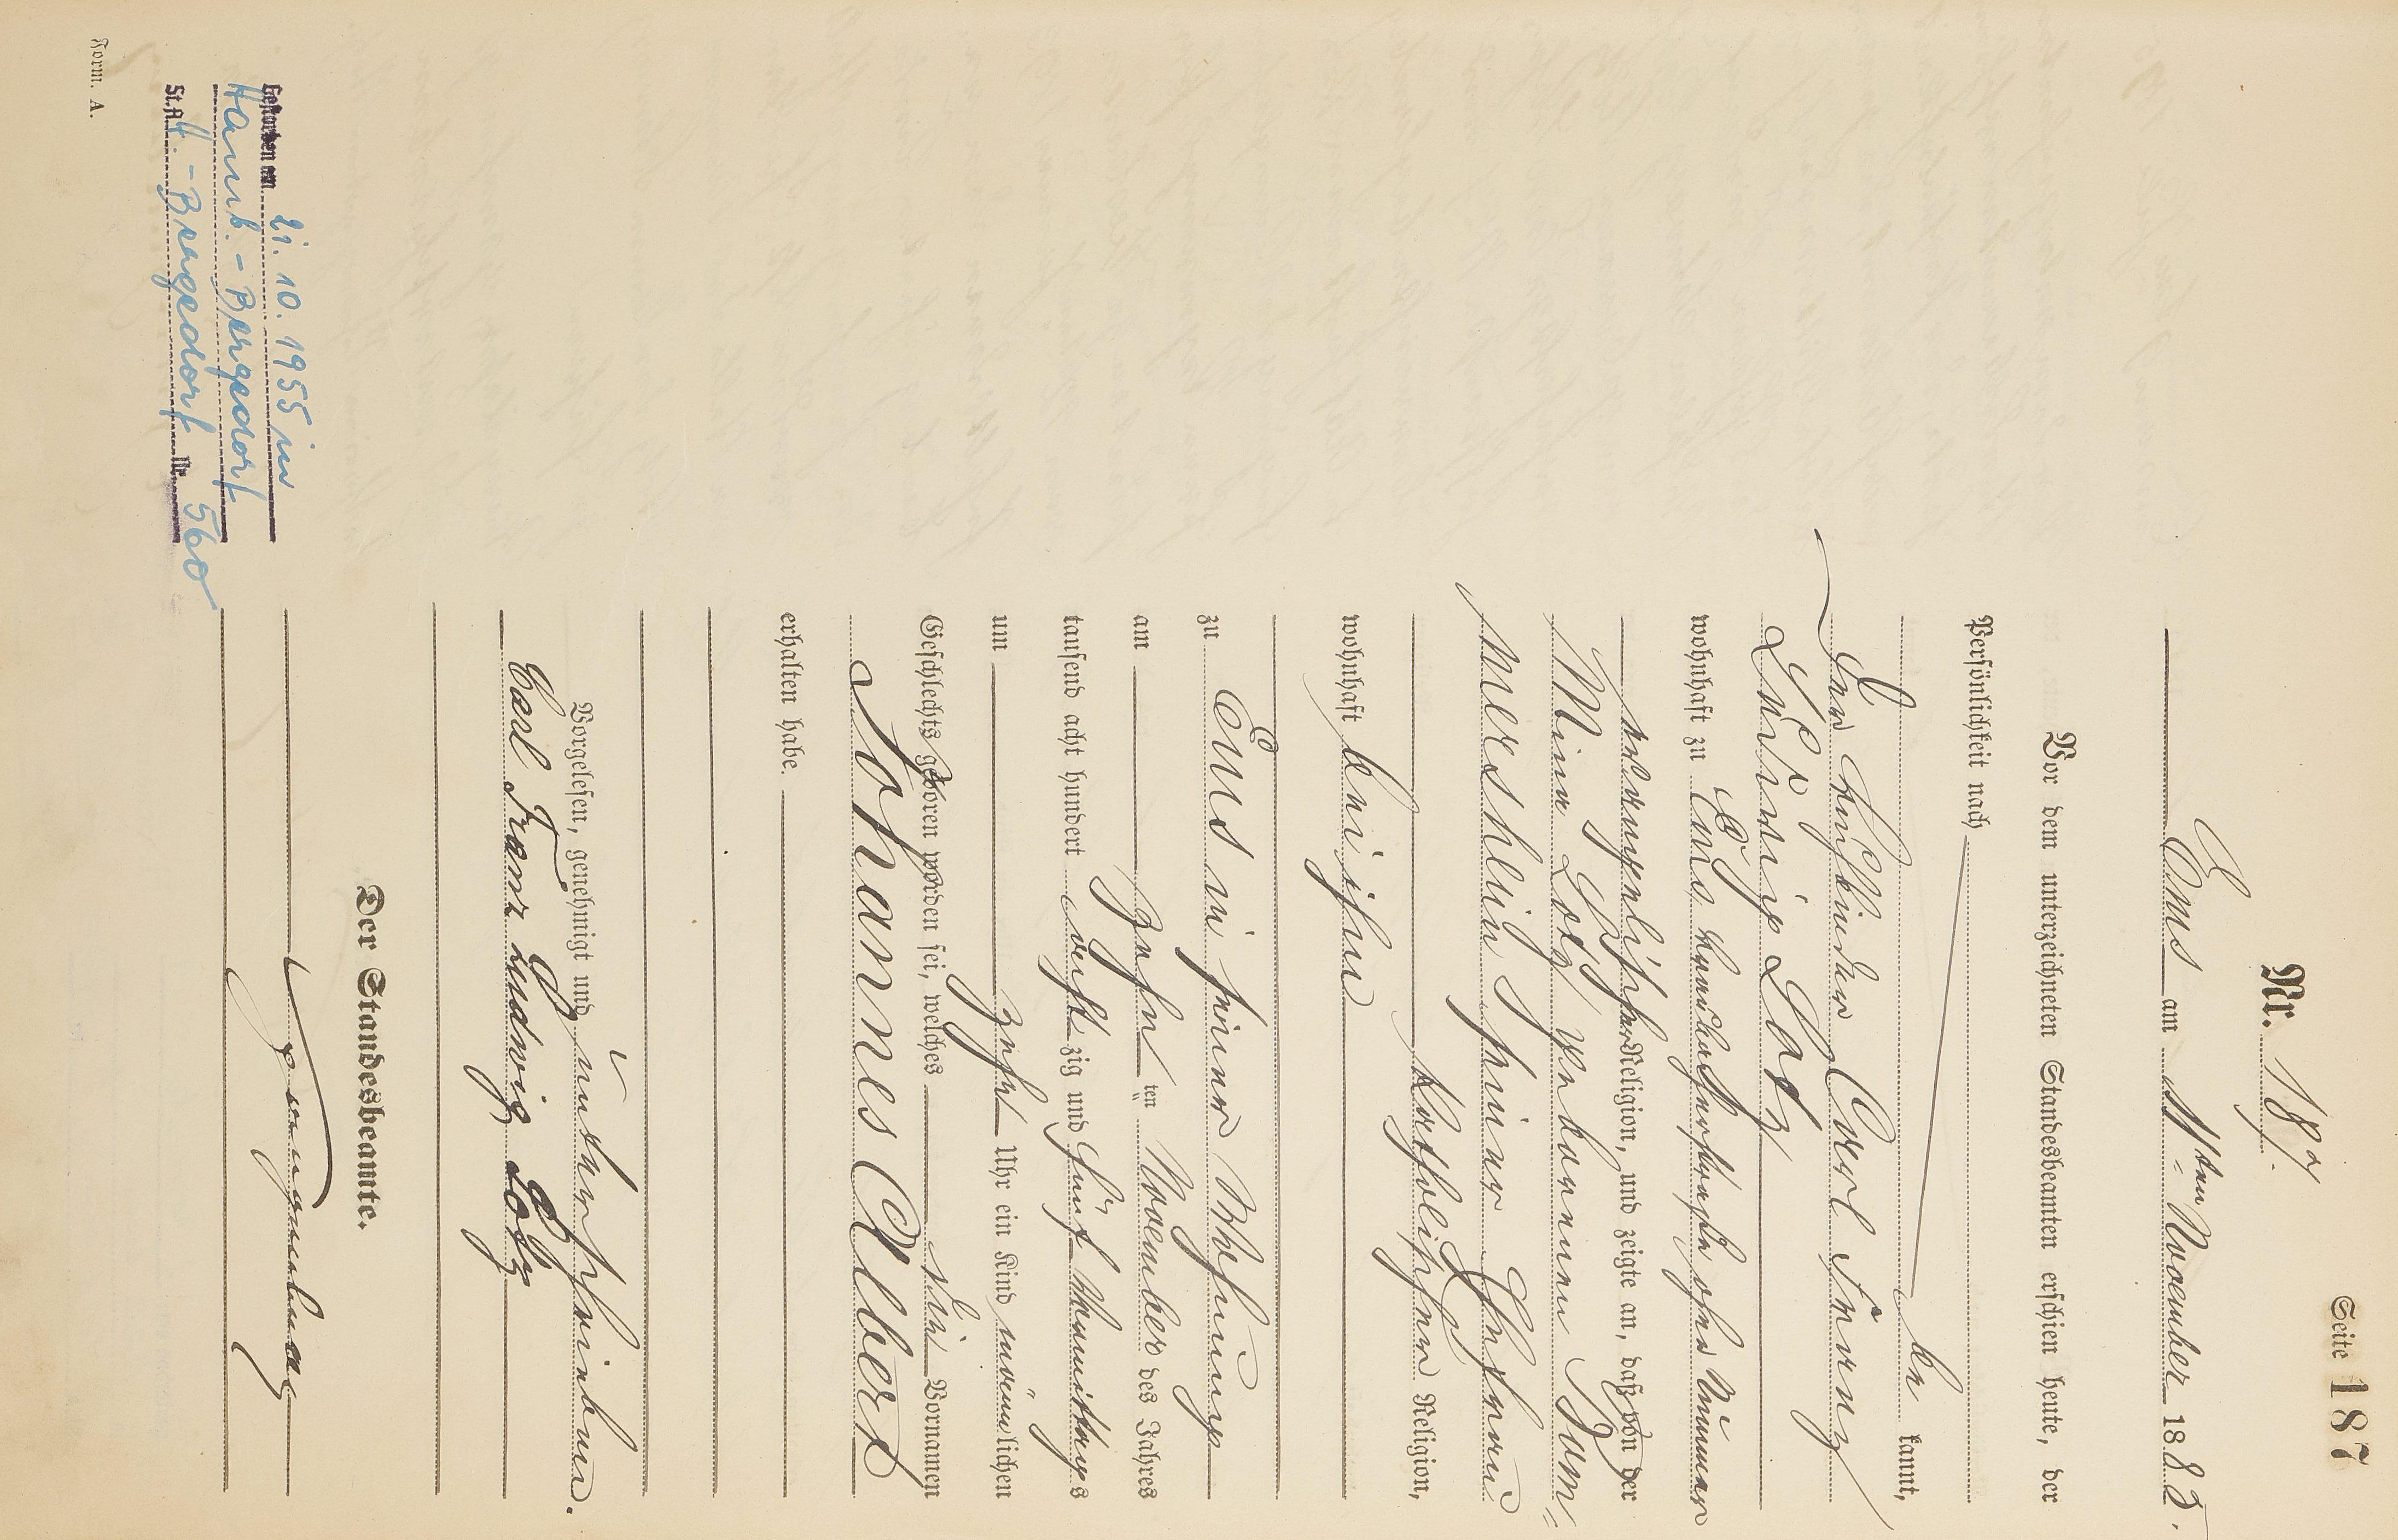 Seite 187
Nr. 187.
Ems am 11ten November 1885.
Vor dem unterzeichneten Standesbeamten erschien heute, der
Persönlichkeit nach
be kannt,
der Carl Franz
Ludwig Lotz
wohnhaft zu Ems ohne Nummer
evangelischer Religion, und zeigte an, daß von der
Mina Lotz geborenen Bom=
mershein seiner Ehefrau
katholischer Religion,
wohnhaft bei ihm
zu Ems in seiner Wohnung
am zehn ten November des Jahres
tausend acht hundert acht zig und fünf Vormittags
um zehn Uhr ein Kind männlichen
Geschlechts geboren worden sei, welches die Vornamen
Johannes Albert
erhalten habe.
Vorgelesen, genehmigt und unterschrieben.
Carl Franz Ludwig Lotz
Der Standesbeamte.
Gestorben am 21. 10. 1955 in
Hamb.-Bergedorf
St.A. H.-Bergedorf Nr. 560
Form. A.